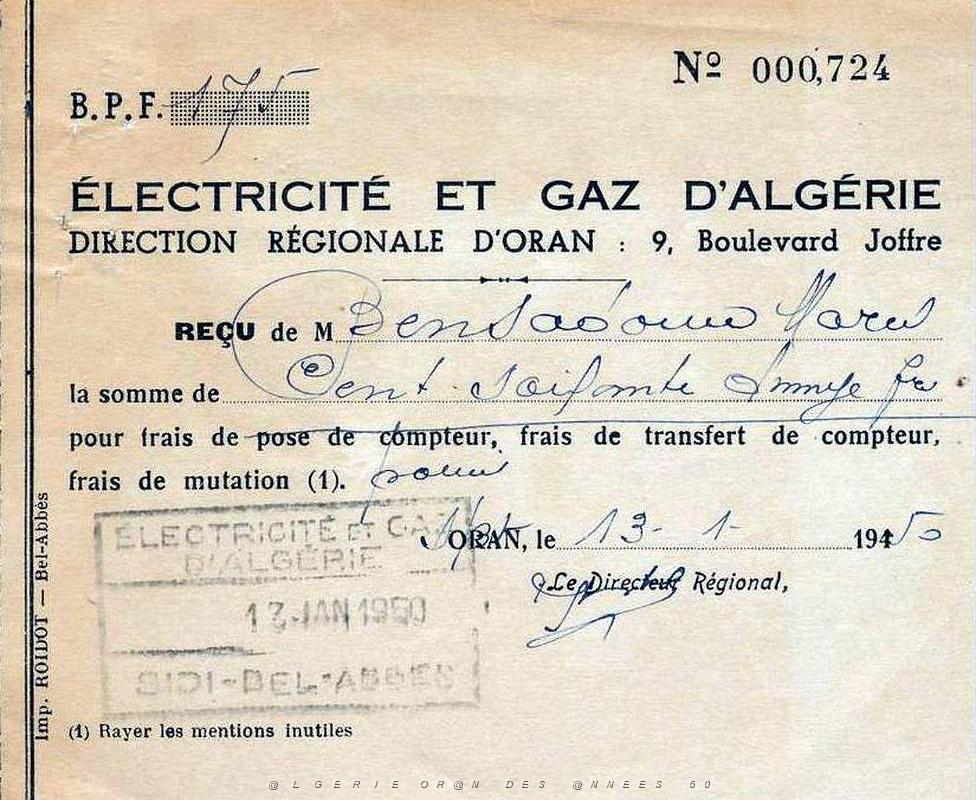 Nº 000,724
B.P.F. 175
ÉLECTRICITÉ ET GAZ D'ALGÉRIE
DIRECTION RÉGIONALE D'ORAN : 9, Boulevard Joffre
REÇU de M Bensadoun
la somme de Cent soixante quinze frs
pour frais de pose de compteur, frais de transfert de compteur,
frais de mutation (1).
ORAN, le 13-1-1950
Le Directeur Régional,
ÉLECTRICITÉ ET GAZ
D'ALGÉRIE
13 JAN 1950
SIDI-BEL-ABBÈS
(1) Rayer les mentions inutiles
Imp. ROIDOT — Bel-Abbès
@LGERIE OR@N DES @NNEES 50